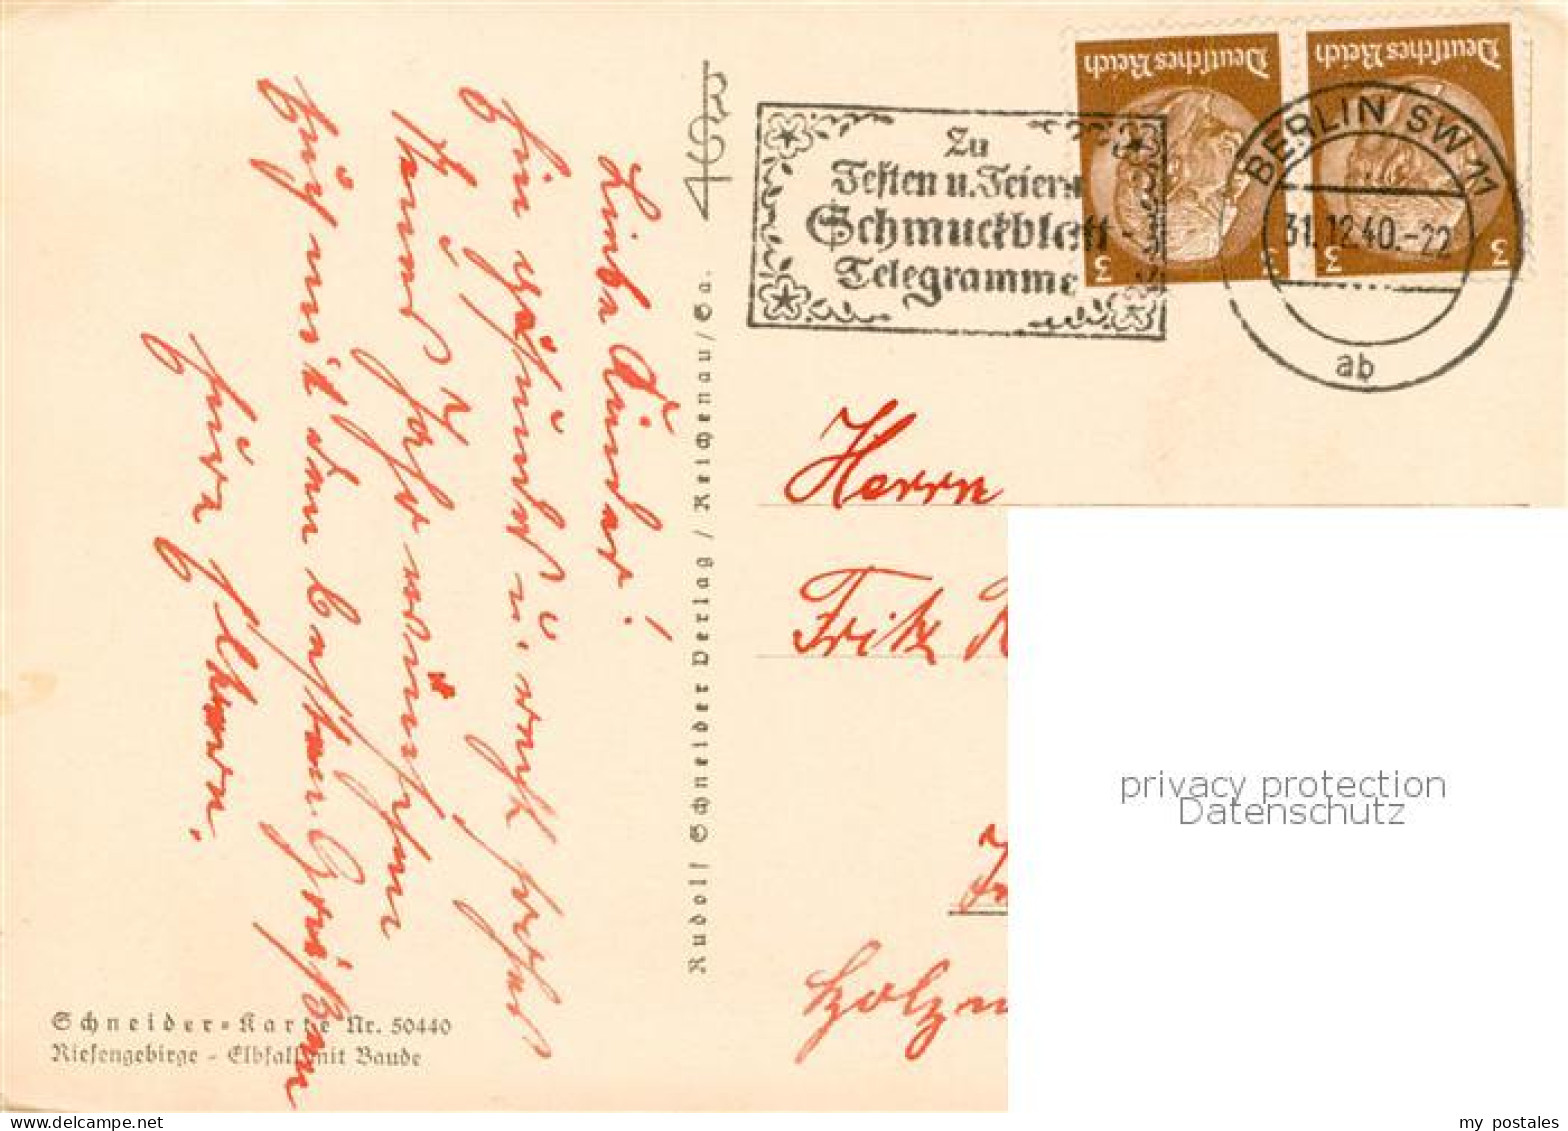 Liebe Kinder!
Ein gesundes u. recht frohes
neues Jahr wünschen
Euch mit den besten Grüßen
Eure Eltern.
Rudolf Schneider Verlag / Reichenau / Sa.
Schneider-Karte Nr. 50440
Riesengebirge - Elbfall mit Baude
Zu
Festen u. Feiern
Schmuckblatt-
Telegramme
Deutsches Reich
3 3
Deutsches Reich
3 3
BERLIN SW 11
31.12.40.-22
ab
Herrn
Fritz
privacy protection
Datenschutz
my postales
delcampe.net